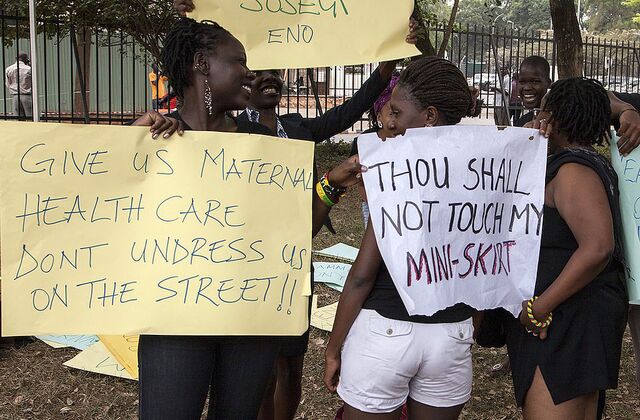 ENO
GIVE US MATERNAL
HEALTH CARE
DONT UNDRESS US
ON THE STREET!!
THOU SHALL
NOT TOUCH MY
MINI-SKIRT